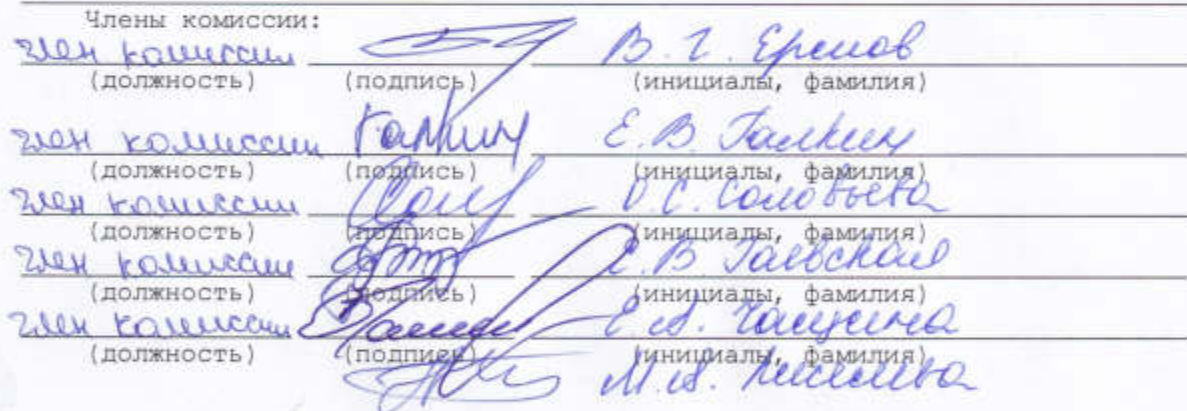 Члены комиссии:
член комиссии В. Г. Ершов
(должность) (подпись) (инициалы, фамилия)
член комиссии Галкин Е. В. Галкин
(должность) (подпись) (инициалы, фамилия)
член комиссии О. С. Соловьева
(должность) (подпись) (инициалы, фамилия)
член комиссии В. Гаевская
(должность) (подпись) (инициалы, фамилия)
член комиссии Е. А.
(должность) (подпись) (инициалы, фамилия)
М. А.